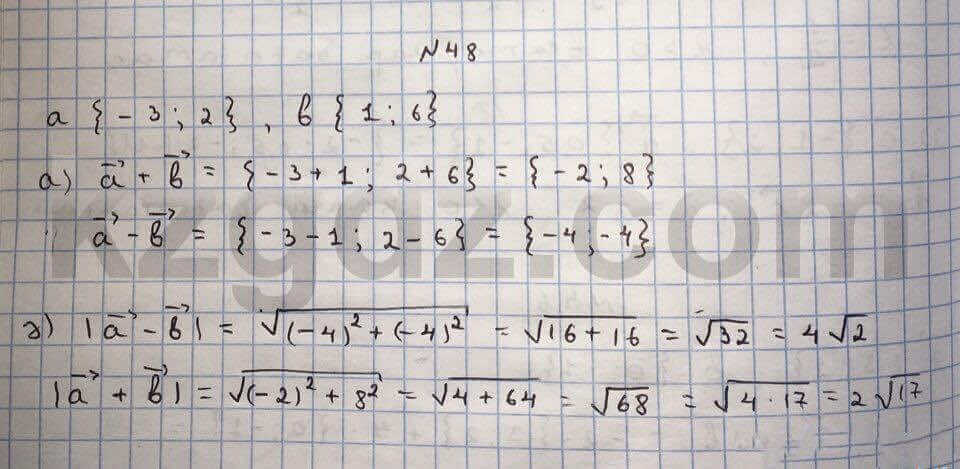 №48
a {-3; 2}, b {1; 6}
a) a⃗ + b⃗ = {-3+1; 2+6} = {-2; 8}
a⃗ - b⃗ = {-3-1; 2-6} = {-4; -4}
kzgdz.com
г) |a⃗ - b⃗| = √((-4)² + (-4)²) = √(16+16) = √32 = 4√2
|a⃗ + b⃗| = √((-2)² + 8²) = √(4+64) = √68 = √(4·17) = 2√17